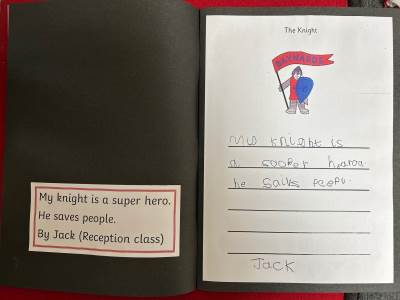 My knight is a super hero.
He saves people.
By Jack (Reception class)
The Knight
BAYNARDS
Mis knight is
a sooper heroa.
he saivs peepu.
Jack